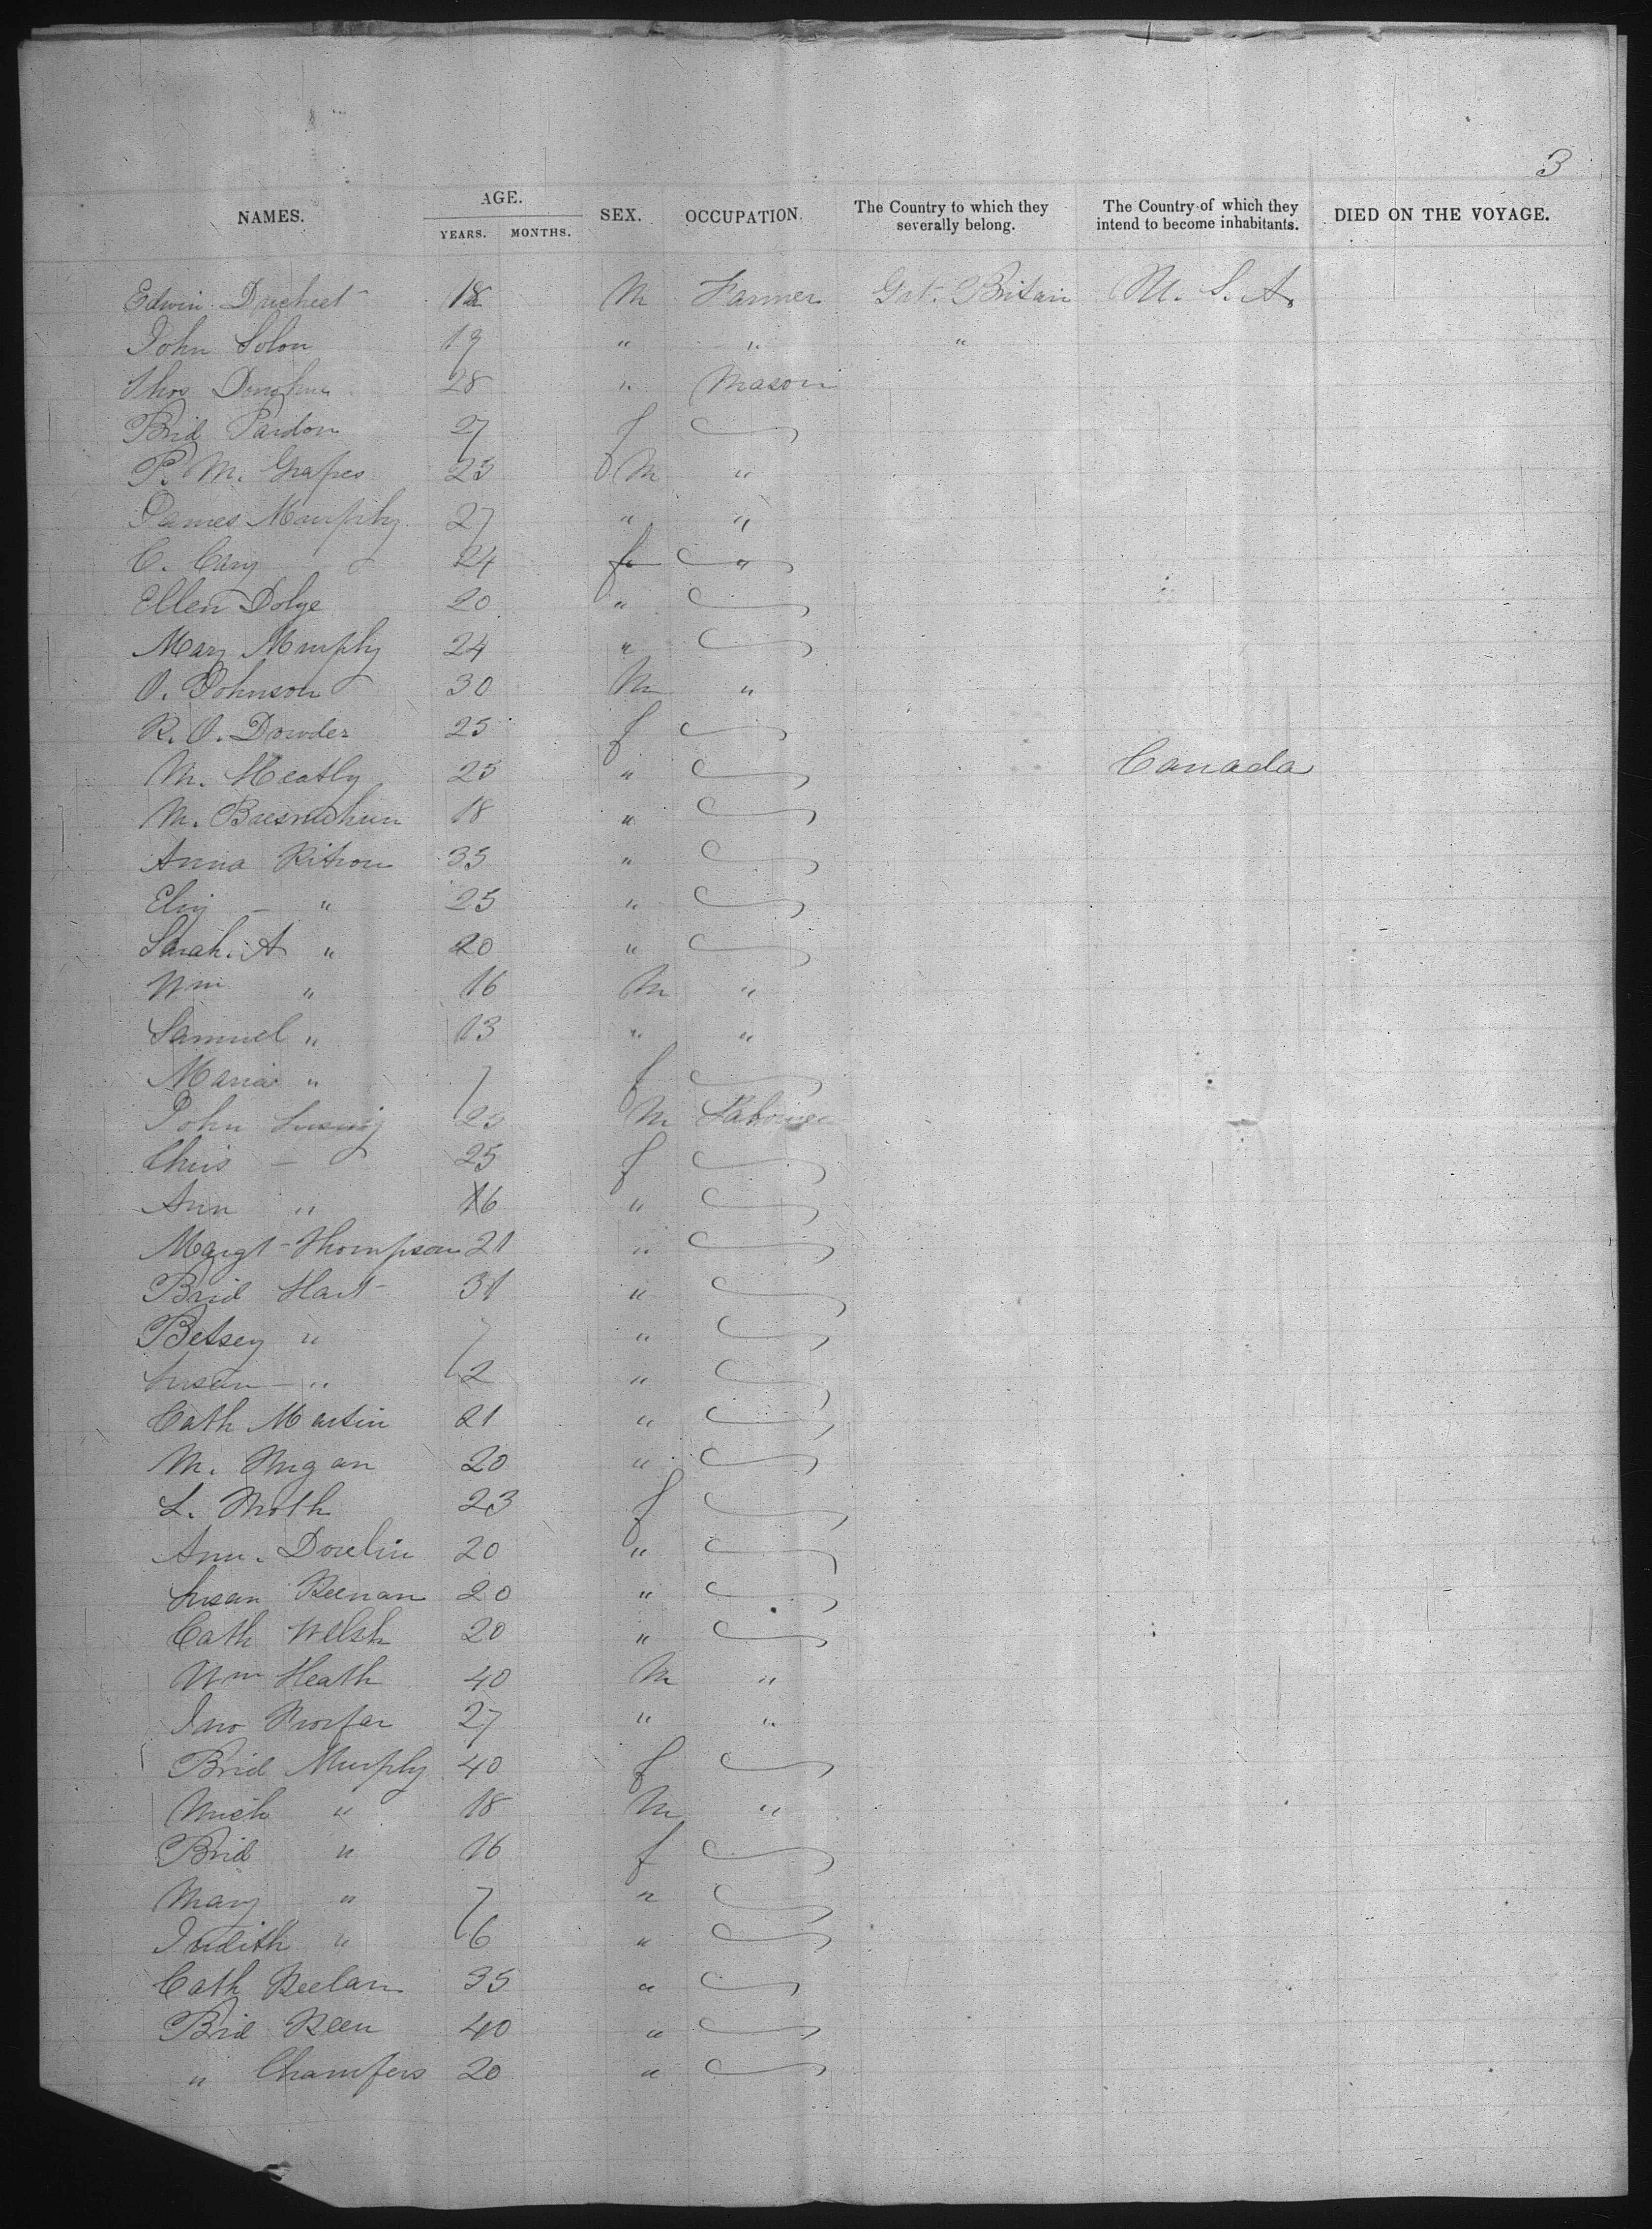 3
NAMES. AGE. SEX. OCCUPATION. The Country to which they severally belong. The Country of which they intend to become inhabitants. DIED ON THE VOYAGE.
YEARS. MONTHS.
Edwin 18 M Farmer Grt. Britain U. S. A.
John Solon 19 " " "
Thos Donohue 28 " Mason
Brid Pardon 27 f
P. M. Grapes 23 M "
James Murphy 27 " "
C. Cary 24 f "
Ellen Dolye 20 "
Mary Murphy 24 "
O. Johnson 30 M "
R. O. Dowder 25 f
M. Heatly 25 " Canada
M. 18 "
Anna Ritson 35 "
Eliz - " 25 "
Sarah. A " 20 "
Wm " 16 M "
Samuel " 13 " "
Maria " 7 f
John 25 M Labourer
Chris - 25 f
Ann " 16 "
Margt Thompson 21 "
Brid Hart 31 "
Betsey " 7 "
Susan - " 2 "
Cath Martin 21 "
M. Nugan 20 "
L. 23 f
Ann. Dowlin 20 "
Susan Keenan 20 "
Cath Welsh 20 "
Wm Heath 40 M "
Jno 27 " "
Brid Murphy 40 f
Mich " 18 M "
Brid " 16 f
Mary " 7 "
Judith " 6 "
Cath Keelan 35 "
Brid Keen 40 "
" Champers 20 "